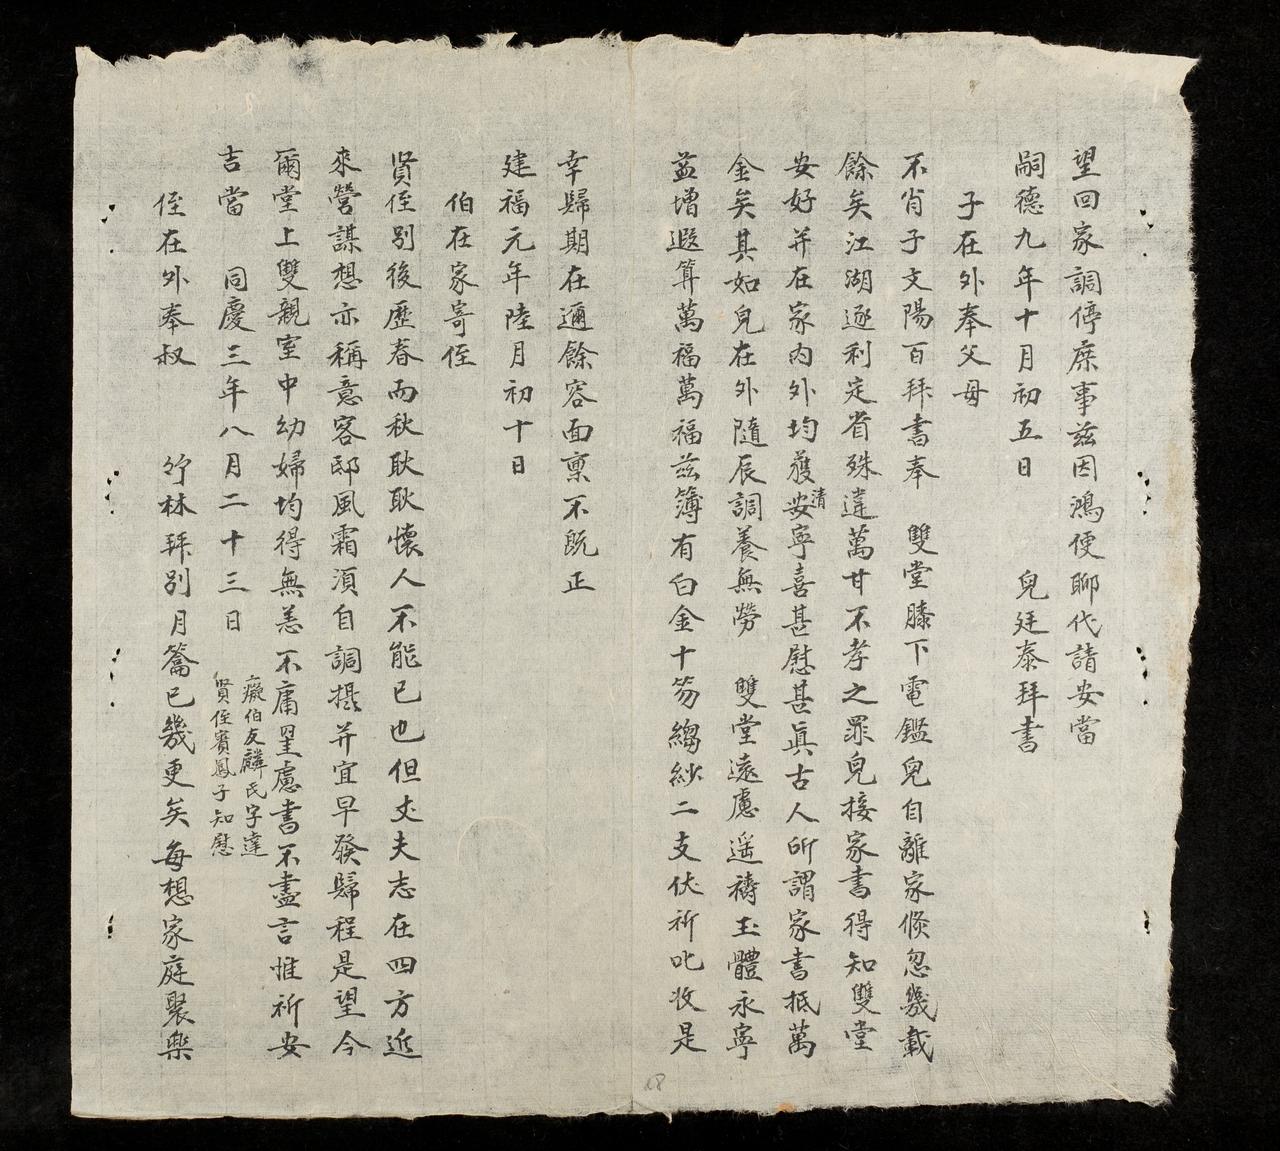 望回家調停庶事茲因鴻便聊代請安當
嗣德九年十月初五日 兒廷泰拜書
子在外奉父母
不肖子文陽百拜書奉 雙堂膝下電鑑兒自離家倏忽幾載
餘矣江湖逐利定省殊違萬甘不孝之罪兒接家書得知雙堂
安好并在家內外均獲安清寧喜甚慰甚眞古人所謂家書抵萬
金矣其如兒在外隨辰調養無勞 雙堂遠慮遥禱玉體永寧
益增遐算萬福萬福茲簿有白金十笏縐紗二支伏祈叱收是
幸歸期在邇餘容面禀不既正
建福元年陸月初十日
伯在家寄侄
賢侄別後歷春而秋耿耿懷人不能已也但丈夫志在四方近
來營謀想亦稱意客邸風霜須自調攝并宜早發歸程是望今
爾堂上雙親室中幼婦均得無恙不庸罣慮書不盡言惟祈安
吉當 同慶三年八月二十三日
癡伯友麟氏字達
賢侄賓鳳子知慰
侄在外奉叔 竹林拜別月籥已幾更矣每想家庭聚樂
18